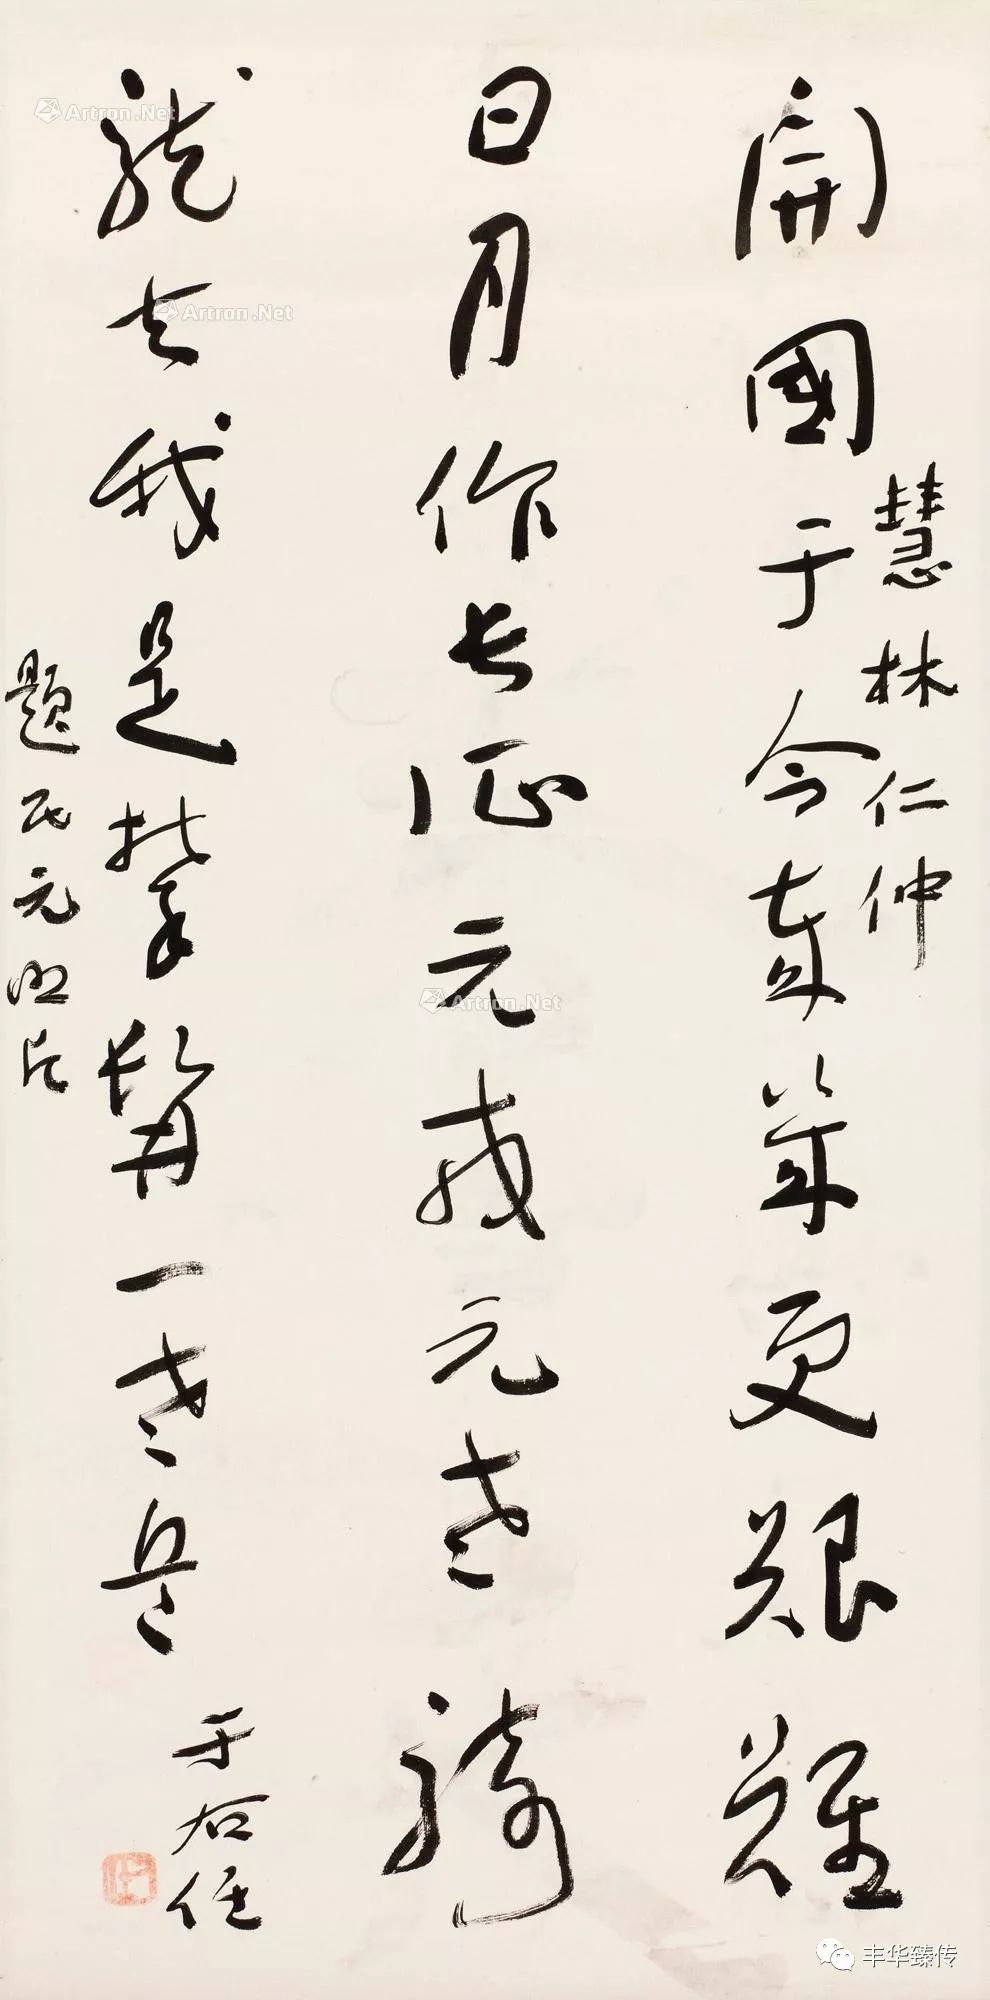 慧林仁仲
開國于今歲幾更艱難
日月作長征元戎元老騎
龍去我是攀髯一老兵
于右任
題民元照片
Artron.Net
Artron.Net
Artron.Net
丰华臻传